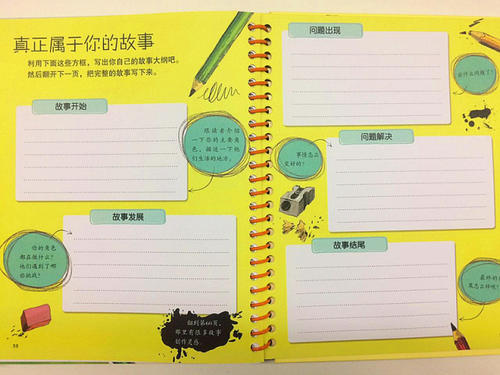 真正属于你的故事
利用下面这些方框，写出你自己的故事大纲吧。
然后翻开下一页，把完整的故事写下来。
故事开始
跟读者介绍
一下你的主要角
色，描述一下他
们生活的地方。
故事发展
你的角色
都在做什么？
他们遇到了哪
些挑战？
翻到第
页，
那里有很多故事
创作灵感。
问题出现
问题解决
事情怎么
变好的？
故事结尾
最终的
果怎么样呢？